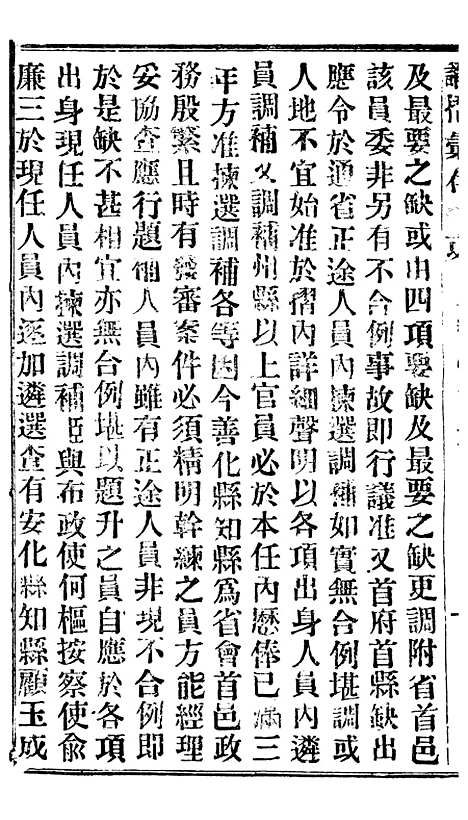 及最要之缺或由四項要缺及最要之缺更調附省首邑
該員委非另有不合例事故即行議准又首府首縣缺出
應令於通省正途人員內揀選調補如實無合例堪調或
人地不宜始准於摺內詳細聲明以各項出身人員內遴
員調補又調補州縣以上官員必於本任內歷俸已滿三
年方准揀選調補各等因今善化縣知縣爲省會首邑政
務殷繁且時有發審案件必須精明幹練之員方能經理
妥協查應行題補人員內雖有正途人員非現不合例即
於是缺不甚相宜亦無合例堪以題升之員自應於各項
出身現任人員內揀選調補臣與布政使何樞按察使俞
廉三於現任人員內逐加遴選查有安化縣知縣顧玉成